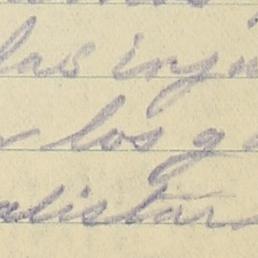 las inj
los g
alistar